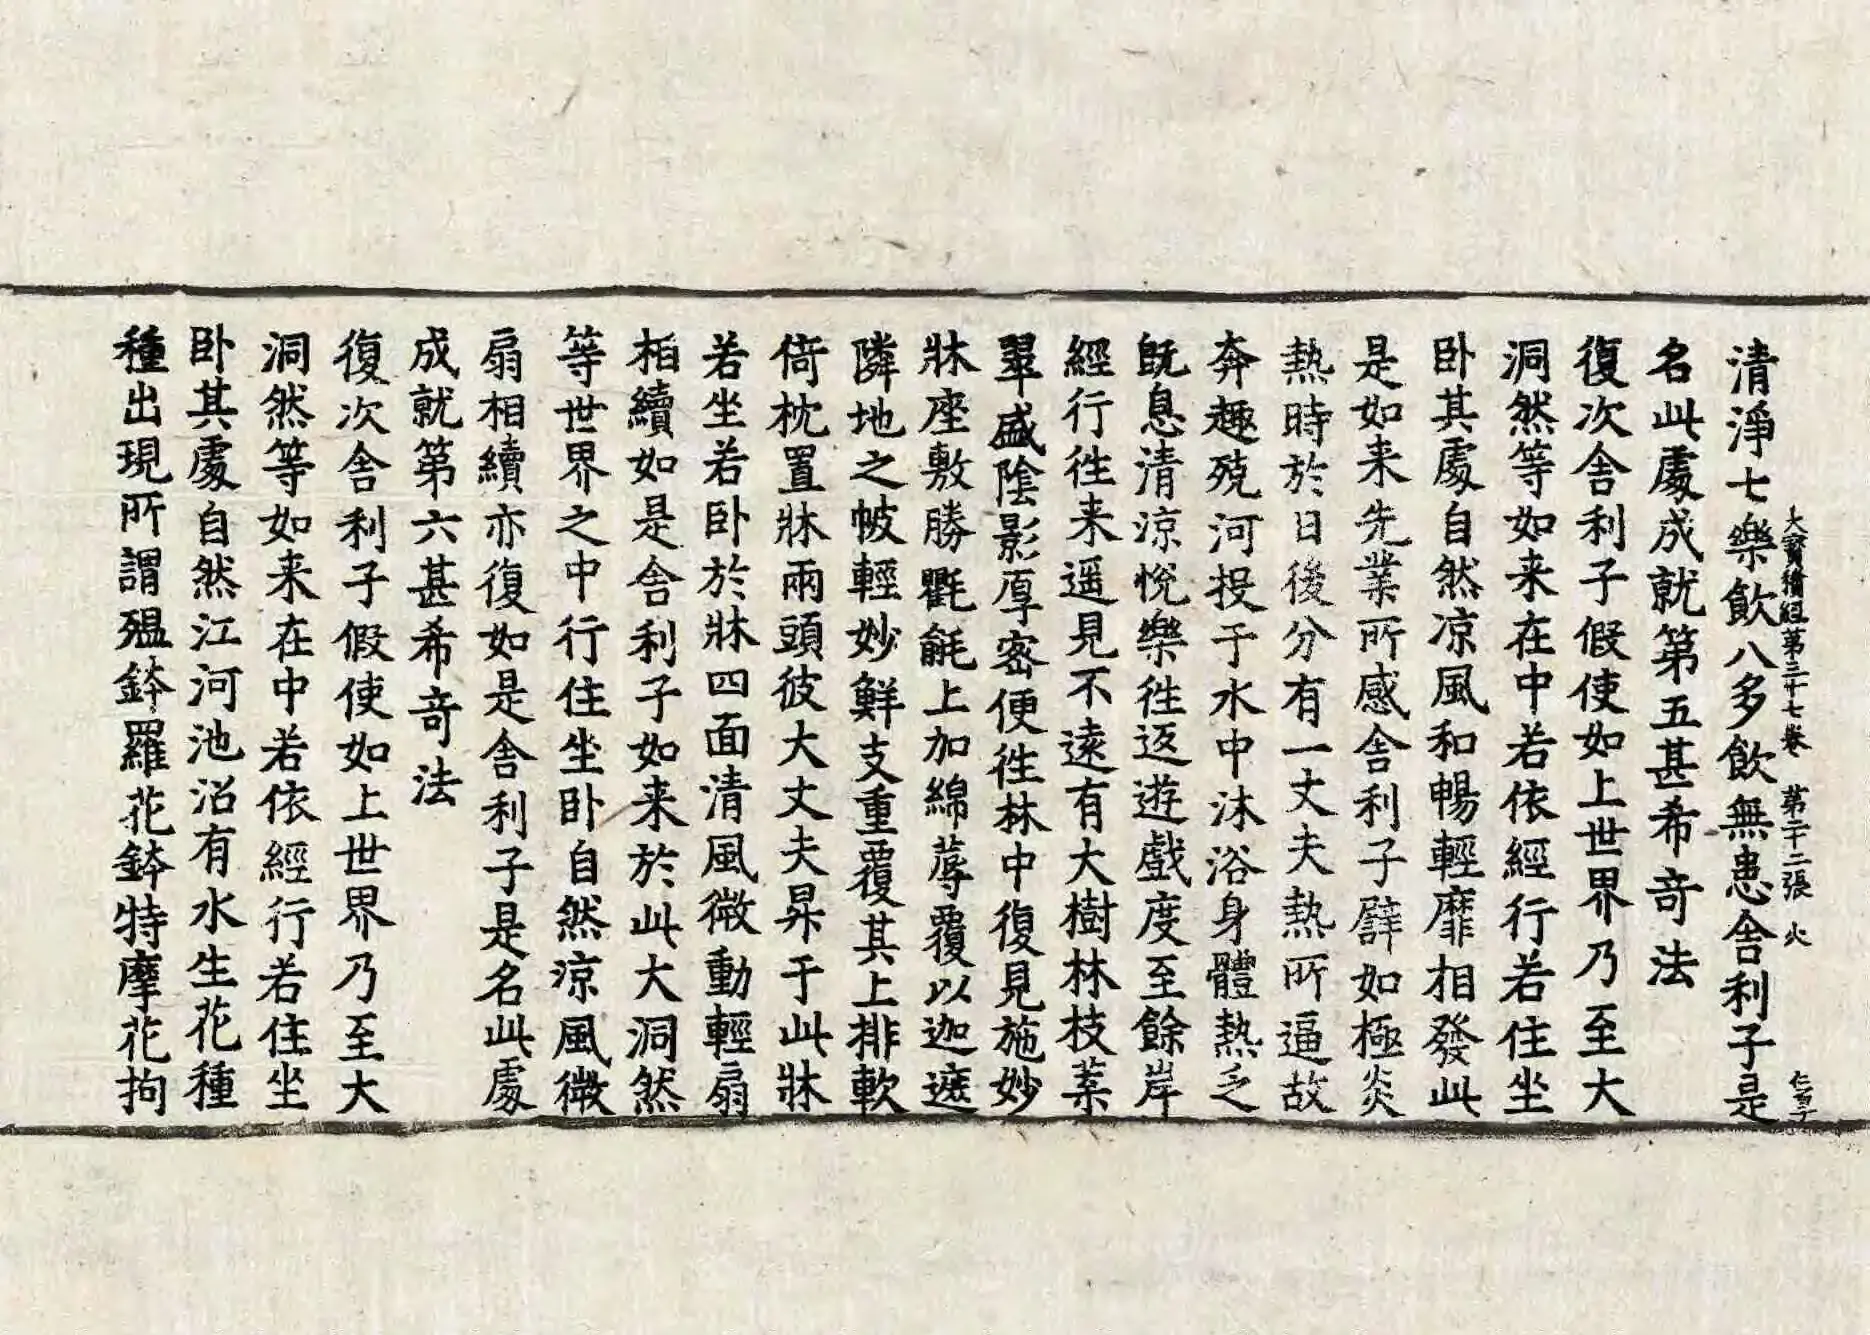 清淨七樂飲八多飲無患舍利子是
大寶積經第三十七卷　第二十二張　火
名此處成就第五甚希奇法
復次舍利子假使如上世界乃至大
洞然等如来在中若依經行若住坐
卧其處自然凉風和暢輕靡相發此
是如来先業所感舍利子譬如極炎
熱時於日後分有一丈夫熱所逼故
奔趣殑河投于水中沐浴身體熱乏
既息清涼悅樂徃返遊戲度至餘岸
經行徃来遥見不遠有大樹林枝葉
翠盛陰影厚密便徃林中復見施妙
牀座敷勝氍毹上加綿蓐覆以迦遮
隣地之帔輕妙鮮支重覆其上排軟
倚枕置牀兩頭彼大丈夫昇于此牀
若坐若卧於牀四面清風微動輕扇
相續如是舍利子如来於此大洞然
等世界之中行住坐卧自然涼風微
扇相續亦復如是舍利子是名此處
成就第六甚希奇法
復次舍利子假使如上世界乃至大
洞然等如来在中若依經行若住坐
卧其處自然江河池沼有水生花種
種出現所謂殟鉢羅花鉢特摩花拘